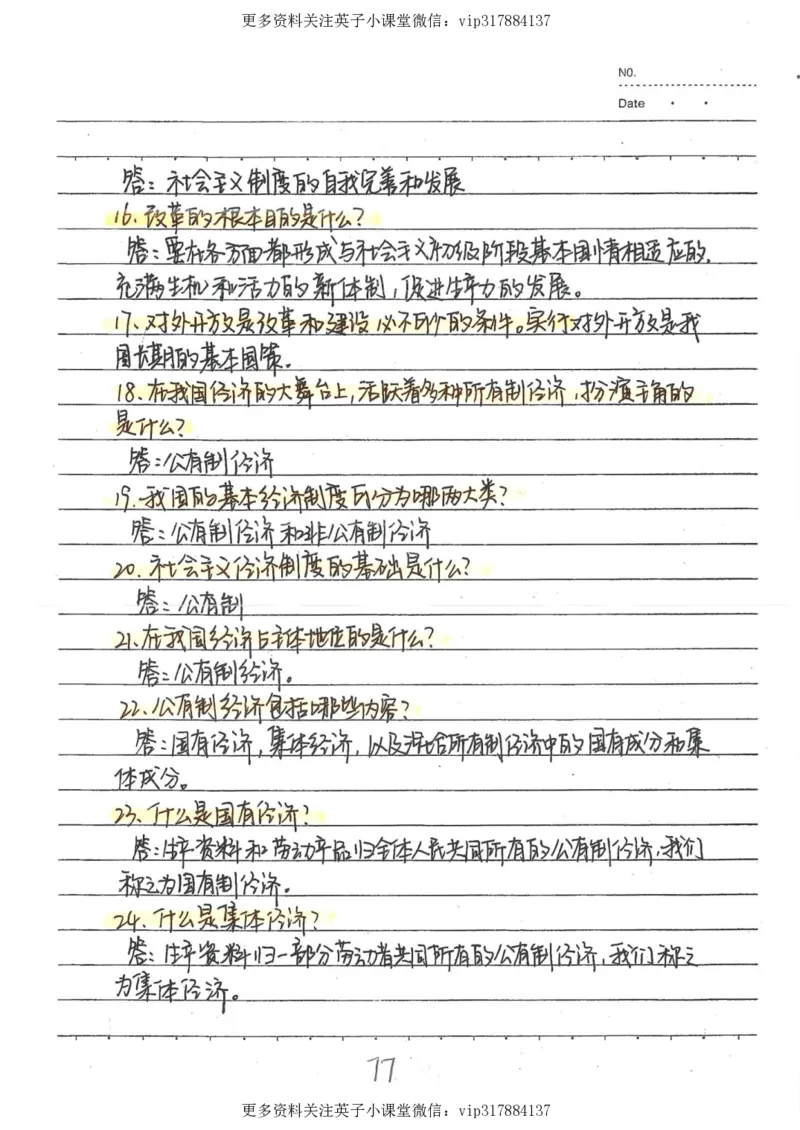 更多资料关注英子小课堂微信：vip317884137
NO.
Date
答：社会主义制度的自我完善和发展
16、改革的根本目的是什么？
答：要在各方面都形成与社会主义初级阶段基本国情相适应的，
充满生机和活力的新体制，促进生产力的发展。
17、对外开放是改革和建设必不可少的条件。实行对外开放是我
国长期的基本国策。
18、在我国经济的大舞台上，活跃着多种所有制经济，扮演主角的
是什么？
答：公有制经济
19、我国的基本经济制度可分为哪两大类？
答：公有制经济和非公有制经济
20、社会主义经济制度的基础是什么？
答：公有制
21、在我国经济占主体地位的是什么？
答：公有制经济。
22、公有制经济包括哪些内容？
答：国有经济，集体经济，以及混合所有制经济中的国有成分和集
体成分。
23、什么是国有经济？
答：生产资料和劳动产品归全体人民共同所有的公有制经济，我们
称之为国有制经济。
24、什么是集体经济？
答：生产资料归一部分劳动者共同所有的公有制经济，我们称之
为集体经济。
77
更多资料关注英子小课堂微信：vip317884137